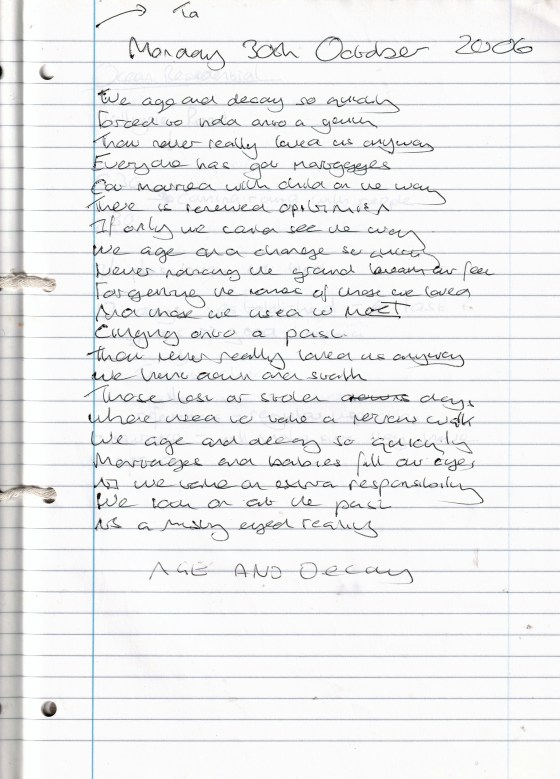 Ta
Monday 30th October 2006
We age and decay so quickly
Forced to hold onto a youth
That never really loved us anyway
Everyone has got mortgages
Got married with child on the way
There is renewed optimism
If only we could see the way
We age and change so quickly
Never noticing the ground beneath our feet
Forgetting the names of those we loved
And those we used to meet
Clinging onto a past
That never really loved us anyway
We hunt down and
Those lost or stolen days
where used to take a nervous walk
We age and decay so quickly
Marriages and babies fill our eyes
As we take on extra responsibility
We look on at the past
As a misty eyed reality
AGE AND Decay